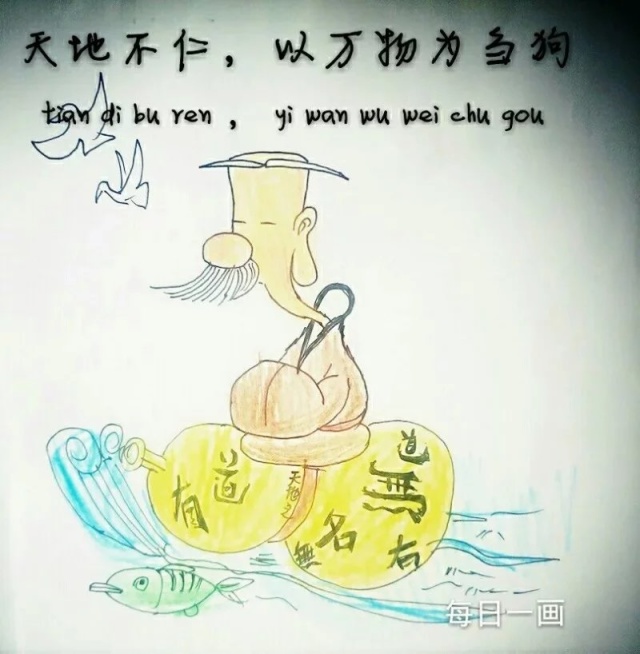 天地不仁，以万物为刍狗
tian di bu ren ， yi wan wu wei chu gou
道
道
有
天地之
無
名
無
右
每日一画